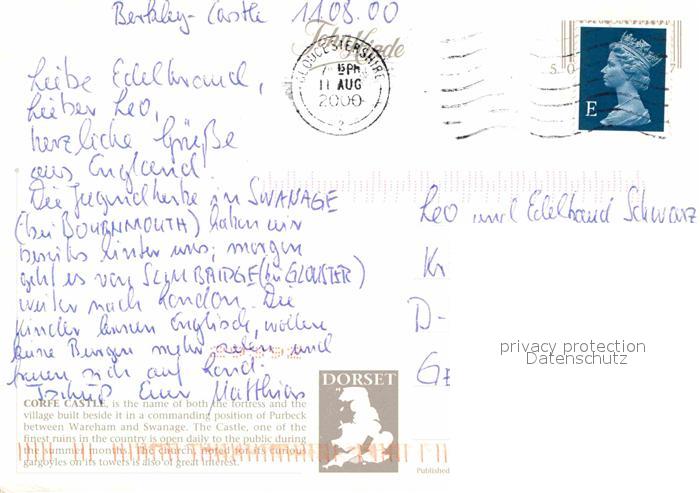 Berkley-Castle 11.08.00
John Hinde
GLOUCESTERSHIRE
7 15PM
11 AUG
2000
2
E
50 7
Liebe Edeltraud,
lieber Leo,
herzliche Grüße
aus England.
Die Jugendherbe in SWANAGE
(bei BOURNMOUTH) haben wir
bereits hinter uns; morgen
geht es von SLIMBRIDGE (bei GLOUSTER)
weiter nach London. Die
Kinder lernen Englisch, wollen
keine Burgen mehr sehen und
freuen sich auf London.
Tschüß Euer Matthias
Leo und Edeltraud Schwarz
Kr
D-
Ge
privacy protection
Datenschutz
DORSET
CORFE CASTLE, is the name of both the fortress and the
village built beside it in a commanding position of Purbeck
between Wareham and Swanage. The Castle, one of the
finest ruins in the country is open daily to the public during
the summer months. The church, noted for its curious
gargoyles on its towers is also of great interest.
Published